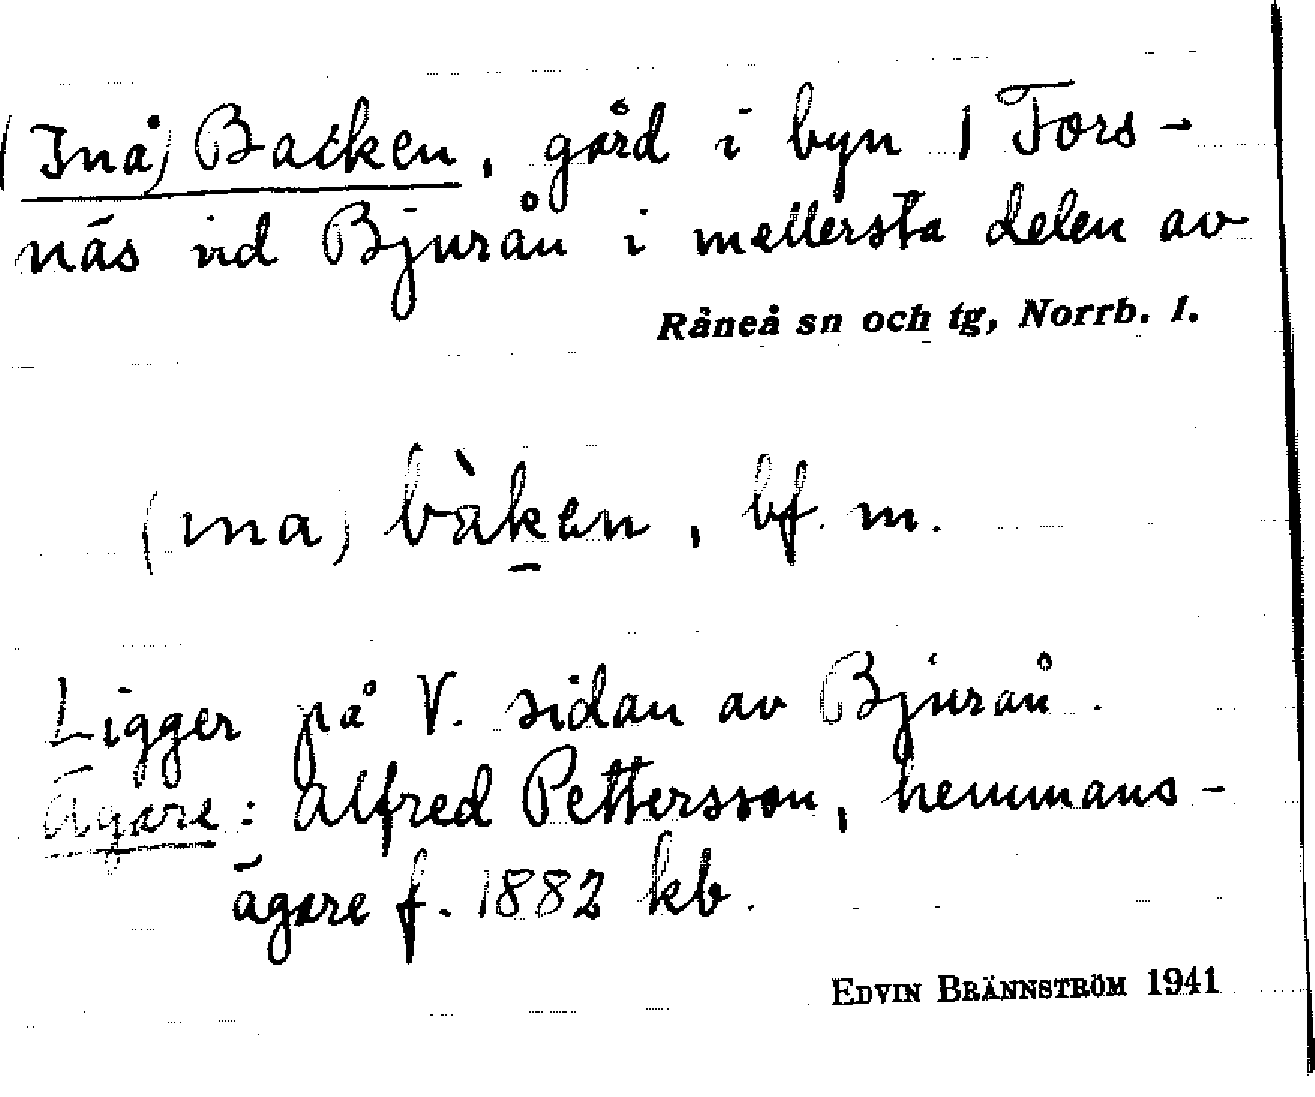 (Inå) Backen, gård i byn 1 Fors-
näs vid Bjurån i mellersta delen av
Råneå sn och tg, Norrb. l.
(ina) bàken, bf. m.
Ligger på V. sidan av Bjurån.
Ägare: Alfred Pettersson, hemmans-
ägare f. 1882 kb.
EDVIN BRÄNNSTRÖM 1941